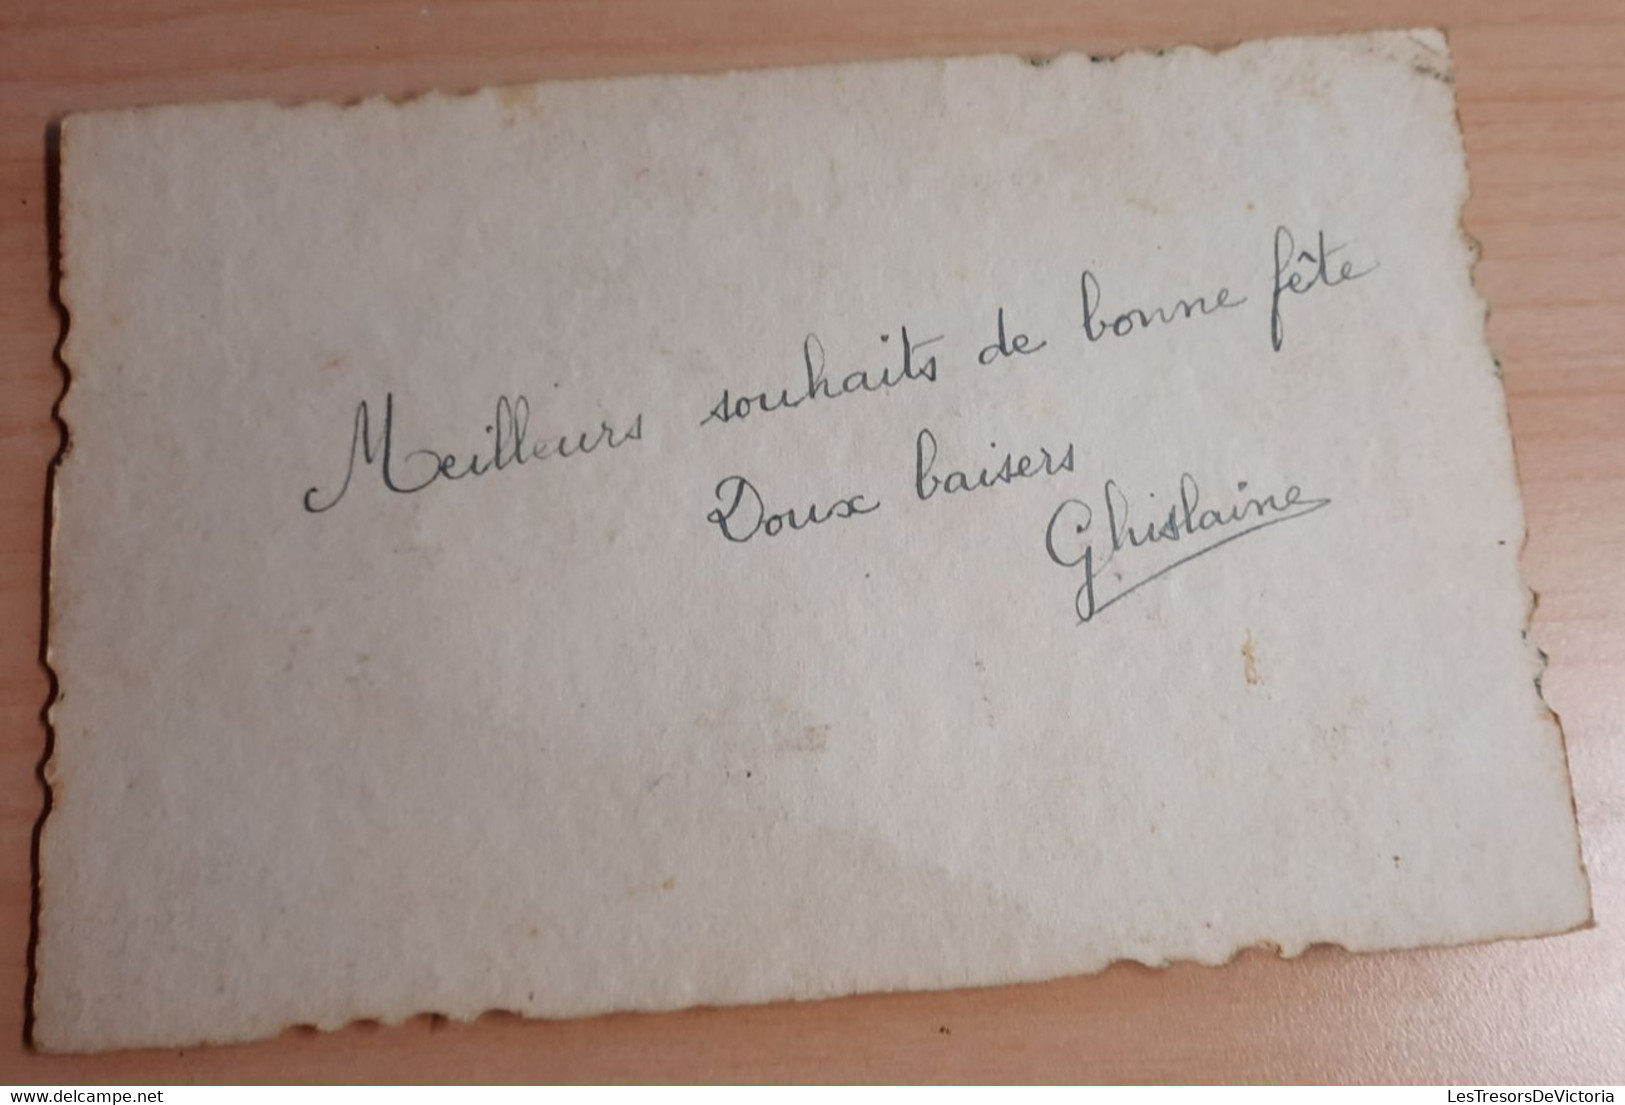 Meilleurs souhaits de bonne fête
Doux baisers
Ghislaine
delcampe.net
LesTresorsDeVictoria